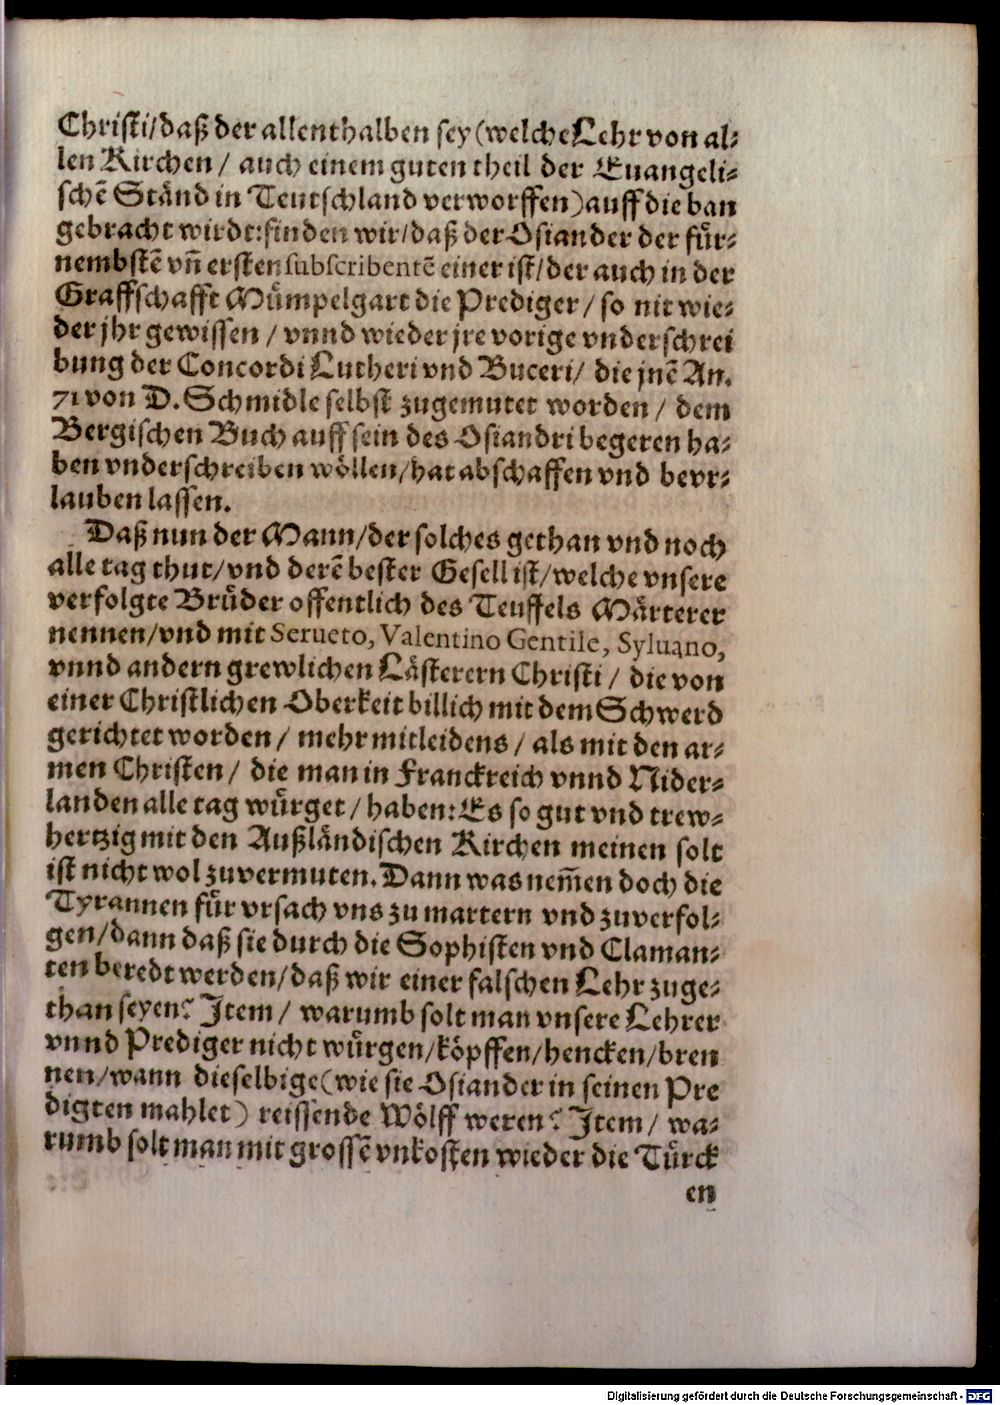 Christi/daß der allenthalben sey (welche Lehr von al-
len Kirchen / auch einem guten theil der Euangeli-
schē Ständ in Teutschland verworffen) auff die ban
gebracht wirdt: finden wir/daß der Osiander der für-
nembstē vn̄ ersten subscribentē einer ist/der auch in der
Graffschafft Mümpelgart die Prediger / so nit wie-
der jhr gewissen / vnnd wieder jre vorige vnderschrei
bung der Concordi Lutheri vnd Buceri/ die jnē An.
71 von D. Schmidle selbst zugemutet worden / dem
Bergischen Buch auff sein des Osiandri begeren ha-
ben vnderschreiben wöllen/hat abschaffen vnd bevr-
lauben lassen.
Daß nun der Mann/der solches gethan vnd noch
alle tag thut/vnd derē bester Gesell ist/welche vnsere
verfolgte Brüder offentlich des Teuffels Märterer
nennen/vnd mit Serueto, Valentino Gentile, Syluano,
vnnd andern grewlichen Lästerern Christi / die von
einer Christlichen Oberkeit billich mit dem Schwerd
gerichtet worden / mehr mitleidens / als mit den ar-
men Christen / die man in Franckreich vnnd Nider-
landen alle tag würget / haben: Es so gut vnd trew-
hertzig mit den Außländischen Kirchen meinen solt
ist nicht wol zuvermuten. Dann was nem̄en doch die
Tyrannen für vrsach vns zu martern vnd zuverfol-
gen/dann daß sie durch die Sophisten vnd Claman-
ten beredt werden/daß wir einer falschen Lehr zuge-
than seyen? Item / warumb solt man vnsere Lehrer
vnnd Prediger nicht würgen/köpffen/hencken/bren
nen/wann dieselbige (wie sie Osiander in seinen Pre
digten mahlet) reissende Wölff weren? Item / wa-
rumb solt man mit grossē vnkosten wieder die Türck
en
Digitalisierung gefördert durch die Deutsche Forschungsgemeinschaft - DFG